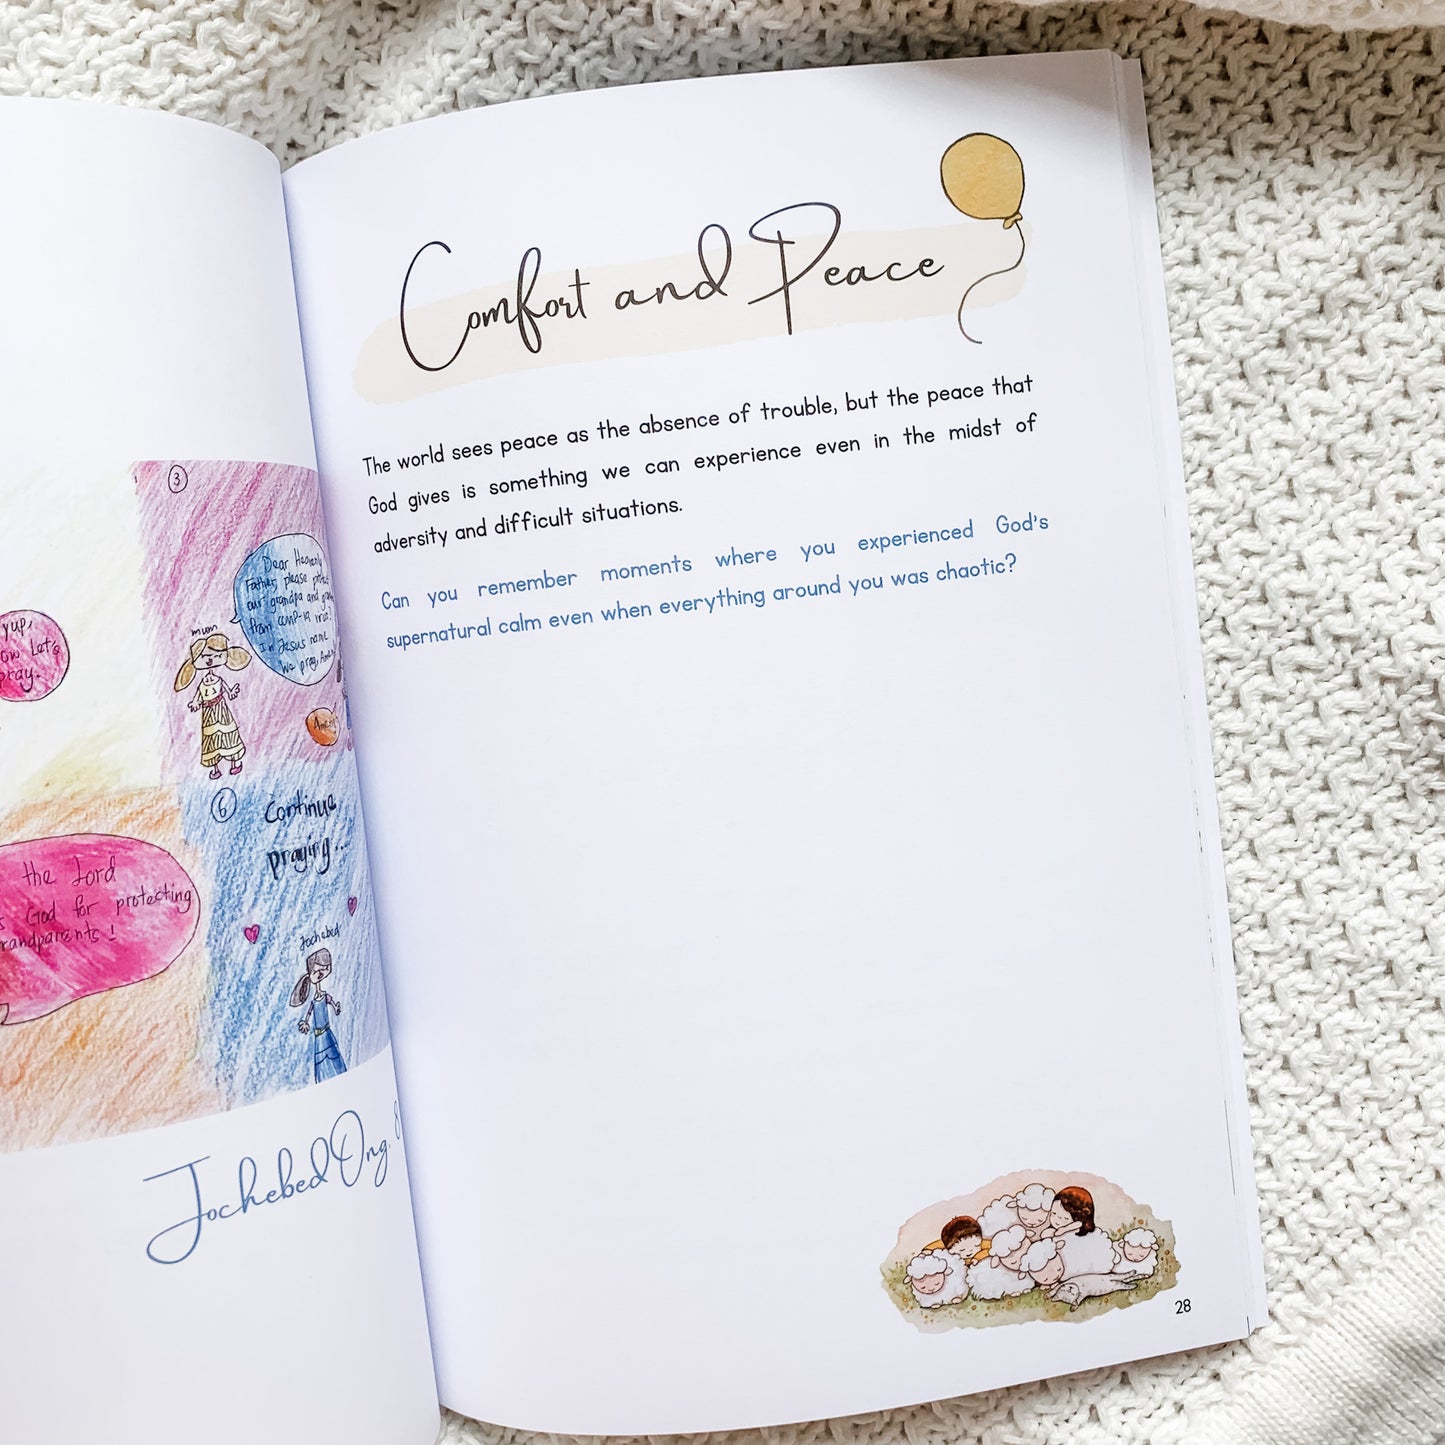 yup,
let's
pray.
3
Dear Heavenly
Father, please
our grandpa and
from COVID-19 virus!
In Jesus name
We pray, Amen
mum
Amen
the Lord
God for protecting
grandparents!
6
Continue
praying...
Jochebed
Jochebed Ong, 8
Comfort and Peace
The world sees peace as the absence of trouble, but the peace that
God gives is something we can experience even in the midst of
adversity and difficult situations.
Can you remember moments where you experienced God's
supernatural calm even when everything around you was chaotic?
28